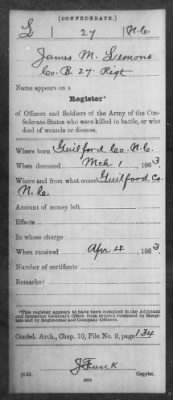 (CONFEDERATE.)
L 27 N.C.
James M. Lemons
Co. B. 27 Regt
Name appears on a
Register*
of Officers and Soldiers of the Army of the Con-
federate States who were killed in battle, or who
died of wounds or disease.
Where born Guilford Co. N.C.
When deceased Mch 1 1863
Where and from what cause Guilford Co.
N.C.
Amount of money left
Effects
In whose charge
When received Apr 4 1863
Number of certificate
Remarks:
*This register appears to have been compiled in the Adjutant
and Inspector General's Office from returns furnished by Hospi-
tals and by Regimental and Company Officers.
Confed. Arch., Chap. 10, File No. 9, page 134
J Funk
Copyist.